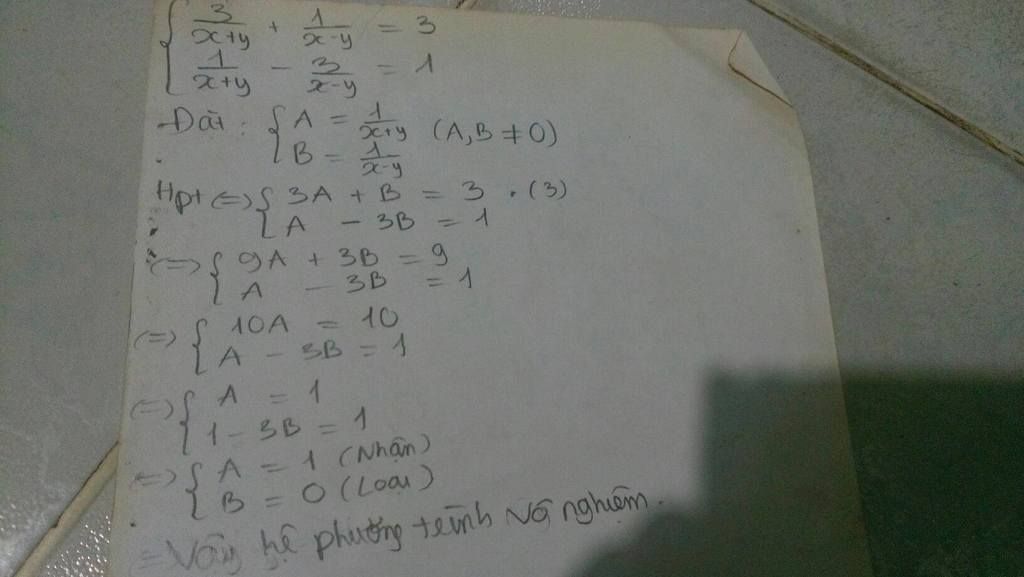 { 3/(x+y) + 1/(x-y) = 3
1/(x+y) - 3/(x-y) = 1
Đặt : { A = 1/(x+y) (A, B ≠ 0)
B = 1/(x-y)
Hpt <=> { 3A + B = 3 . (3)
A - 3B = 1
<=> { 9A + 3B = 9
A - 3B = 1
<=> { 10A = 10
A - 3B = 1
<=> { A = 1
1 - 3B = 1
<=> { A = 1 (Nhận)
B = 0 (Loại)
=> Vậy hệ phương trình vô nghiệm.